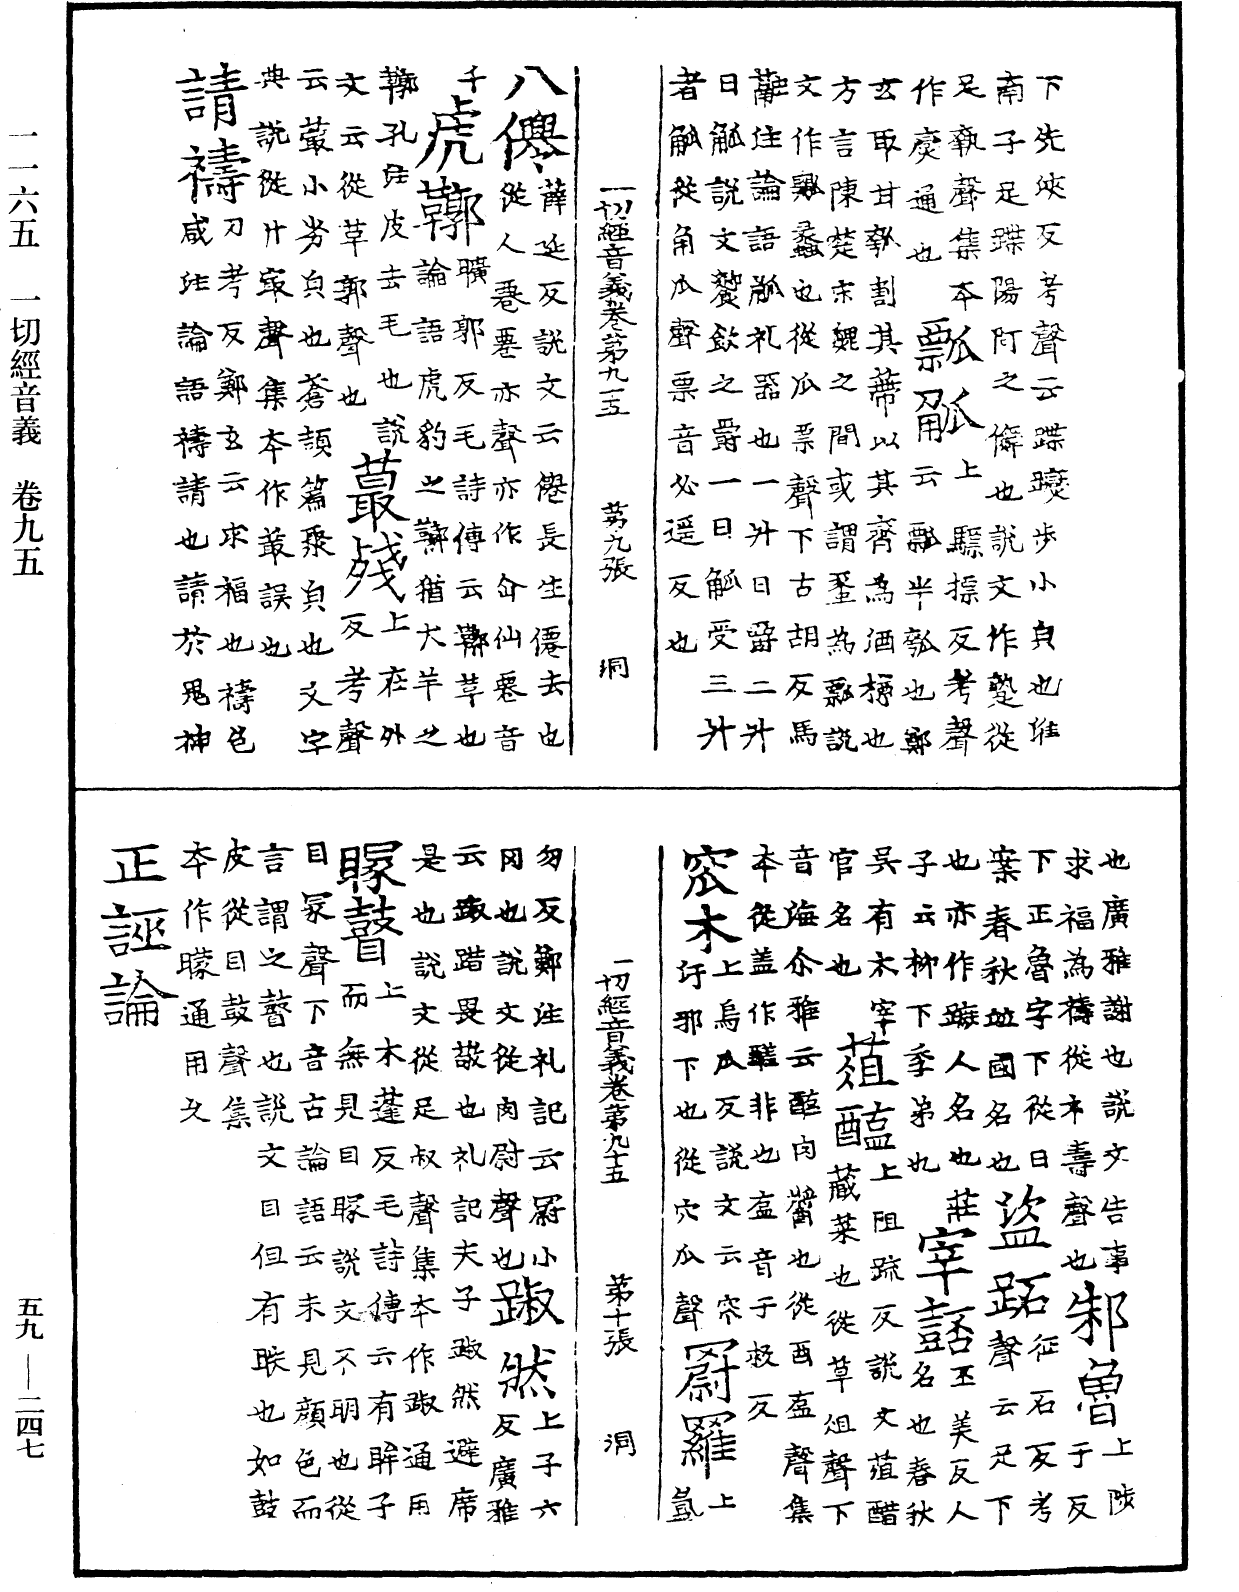 一一六五 一切經音義 卷九五
五九—二四七
下先浹反考聲云蹀躞步小皃也淮
南子足蹀陽阿之儛也說文作蹔從
足執聲集本
作㢜通也
瓢觚
上驃摽反考聲
云瓢半瓠也鄭
玄取甘瓠割其蔕以其齊為酒樽也
方言陳楚宋魏之間或謂蠡為瓢說
文作瓢蠡也從瓜票聲下古胡反馬
融注論語觚礼器也一升曰爵二升
曰觚說文鄉飲之爵一曰觚受三升
者觚從角瓜聲票音必遥反也
一切經音義卷第九十五 第九張 洞
八僊
薛延反說文云僊長生僊去也
從人䙴䙴亦聲亦作仚仙䙴音
千
虎鞹
曠郭反毛詩傳云鞹革也
論語虎豹之鞹猶犬羊之
鞹孔注皮去毛也說
文云從革郭聲也
蕞殘
上在外
反考聲
云蕞小皃也蒼頡篇聚皃也文字
典說從艸最聲集本作叢誤也
請禱
刀考反鄭玄云求福也禱包
咸注論語禱請也請於鬼神
也廣雅謝也說文告事
求福為禱從示壽聲也
邾魯
上陟
于反
下正魯字下從日
案春秋並國名也
盜跖
征石反考
聲云足下
也亦作蹠人名也莊
子云柳下季弟也
宰嚭
丕美反人
名也春秋
吳有太宰
官名也
葅醢
上阻䟽反說文葅醋
藏菜也從草俎聲下
音海尒雅云醢肉醬也從酉㿽聲集
本從盖作醢非也㿽音于救反
窊木
上烏瓜反說文云窊
污邪下也從穴瓜聲
罻羅
上
一切經音義卷第九十五 第十張 洞
勿反鄭注礼記云罻小
网也說文從肉尉聲也
踧然
上子六
反廣雅
云踧踖畏敬也礼記夫子踧然避席
是也說文從足叔聲集本作踧通用
矇瞽
上木蓬反毛詩傳云有眸子
而無見目矇說文不明也從
目冡聲下音古論語云未見顏色而
言謂之瞽也說文目但有眹也如鼓
皮從目鼓聲集
本作矇通用文
正誣論